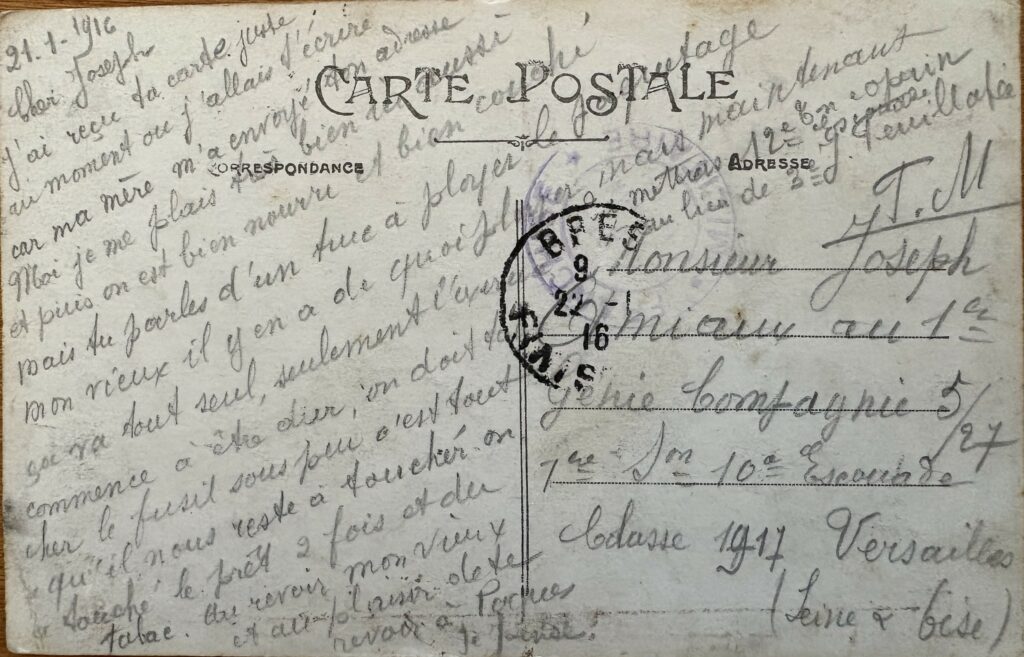 21-1-1916
Cher Joseph
J'ai reçu ta carte juste
au moment ou j'allais t'écrire
car ma mère m'a envoyé ton adresse
Moi je me plais très bien ici aussi
et puis on est bien nourri et bien couché
mais tu parles d'un truc à ployer le paquetage
mon vieux il y en a de quoi mais maintenant
ça va tout seul, seulement l'exercice
commence à être dur, on doit tou
cher le fusil sous peu c'est tout
qu'il nous reste à toucher on
touché le prêt 2 fois et du
tabac. Au revoir mon vieux
et au plaisir de te
revoir à Pâques
Je pense.
CARTE POSTALE
CORRESPONDANCE
ADRESSE
tu mettras 12e Cie copain
au lieu de 3e J. Feuillatre
BREST
9
22 -1
16
F. M
Monsieur Joseph
au 1er
Génie Compagnie 5/27
1re Son 10e Escouade
Classe 1917 Versailles
(Seine & Oise)